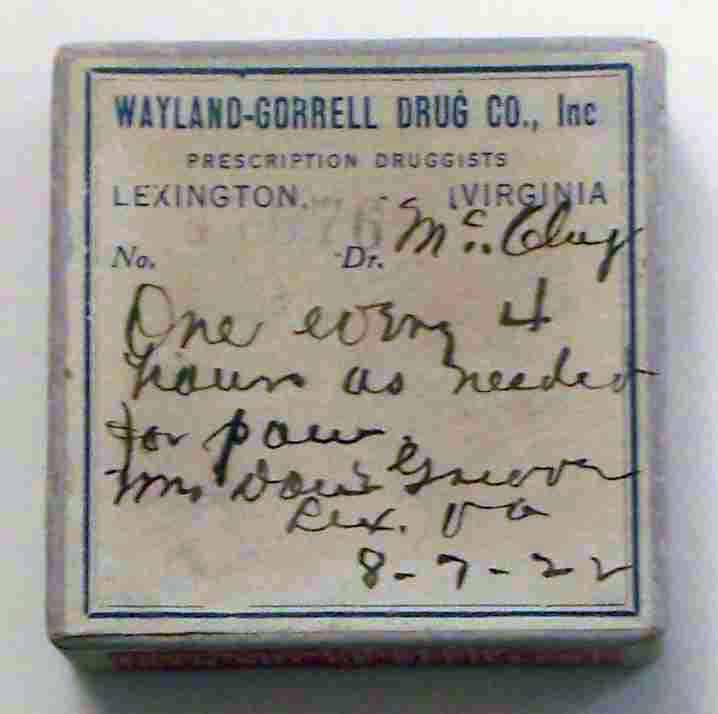 WAYLAND-GORRELL DRUG CO., Inc
PRESCRIPTION DRUGGISTS
LEXINGTON, VIRGINIA
No. Dr. Mc.
One every 4
hours as needed
for pain.
Mrs
Lex. Va
8-7-22